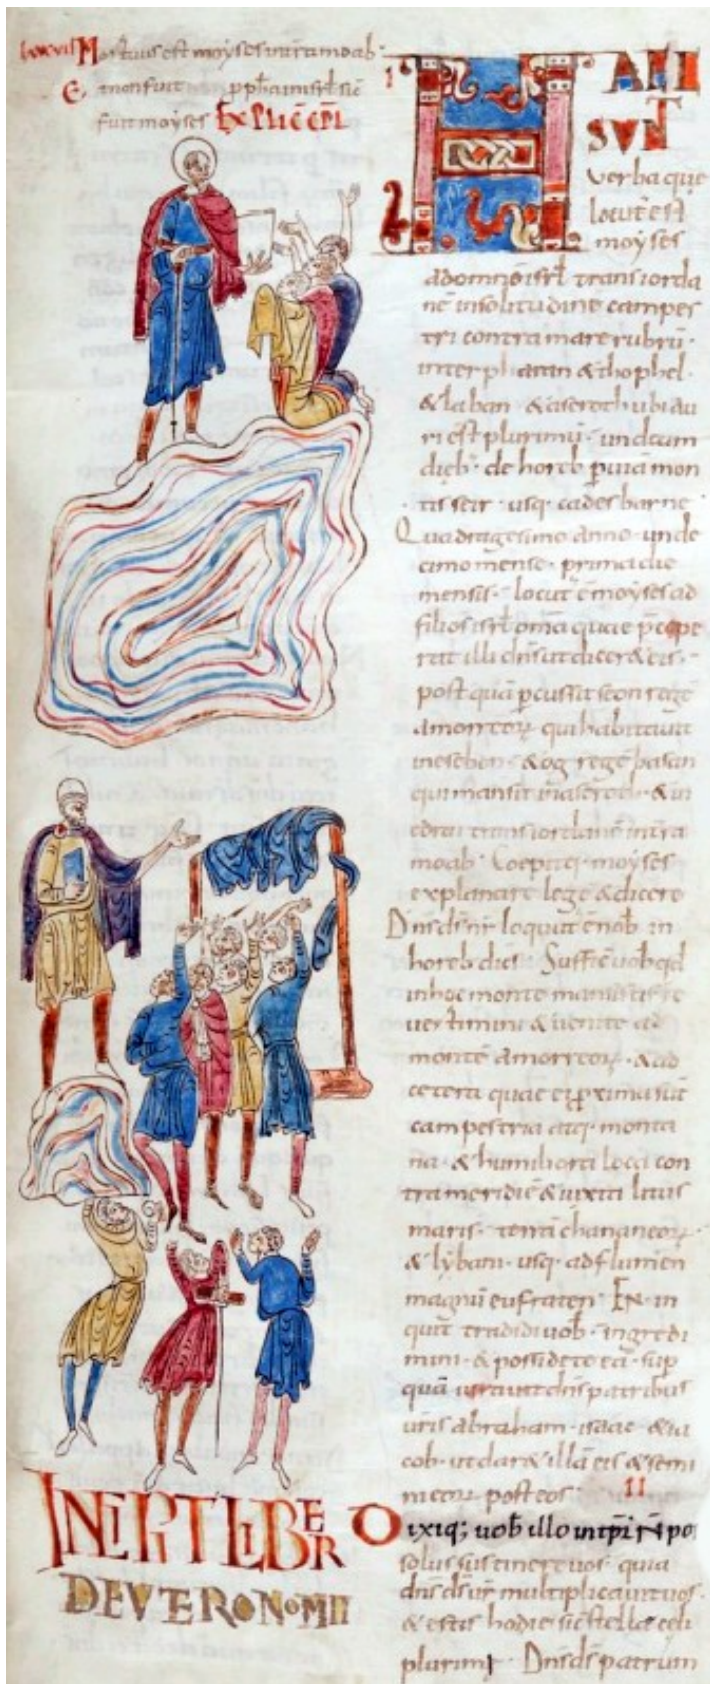 Mortuus est moyses in terra moab·
Et non fuit ppha in isrl sic
fuit moyses Explic̄ cap̄l
INCIPIT LIBER
DEVTERONOMII
I
HAEC
SVNT
verba que
locut est
moyses
ad omnē isrl trans iorda
nē in solitudine campes
tri contra mare rubrū·
inter pharan & thophel·
& laban· & aseroth ubi au
ri ēst plurimū· undecim
dieb· de horeb p uiā mon
tis seir· usq· cades barne·
Quadragesimo anno· unde
cimo mense· prima die
mensis· locut ē moyses ad
filios isrl omā quae pcepe
rat illi dn̄s ut dicer& eis·
post quā pcussit seon regē
amorreoꝝ qui habitauit
in esebon· & og regē basan
qui mansit in aseroth· & in
edrai trans iordanē in tra
moab· Coepitq· moyses
explanare legē & dicere
Dn̄s ds̄ nr̄ loquut ē nob in
horeb dices· Sufficit uob qd
in hoc monte mansistis re
uertimini & uenite ad
montē amorreoꝝ· & ad
cetera quae ei pxima sūt
campestria atq· monta
na· & humiliora loca con
tra meridiē & iuxta litus
maris· terrā chananeoꝝ·
& lybani· usq· ad flumen
magnū eufraten· En· in
quit tradidi uob· ingredi
mini· & possidete eā· sup
quā iurauit dn̄s patribus
uris abraham· isaac· & ia
cob· ut dar& illā eis & semi
ni eoꝝ post eos·
II
Dixiq; uob illo in tp̄r n̄ pos
solus sustinere uos· quia
dn̄s ds̄ ur̄ multiplicauit uos·
& estis hodie sic stellae celi
plurimi· Dn̄s ds̄ patrum